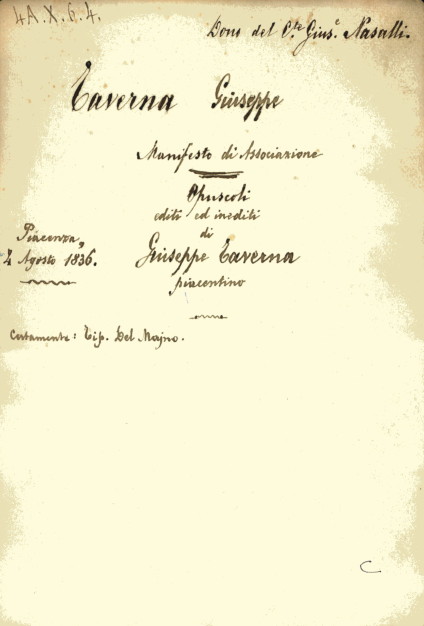 4A.X.6.4.
Dono del C.te Gius.e Nasalli.
Taverna Giuseppe
Manifesto di Associazione
Opuscoli
editi ed inediti
di
Giuseppe Taverna
piacentino
Piacenza,
4 Agosto 1836.
Certamente: Tip. Del Majno.
C